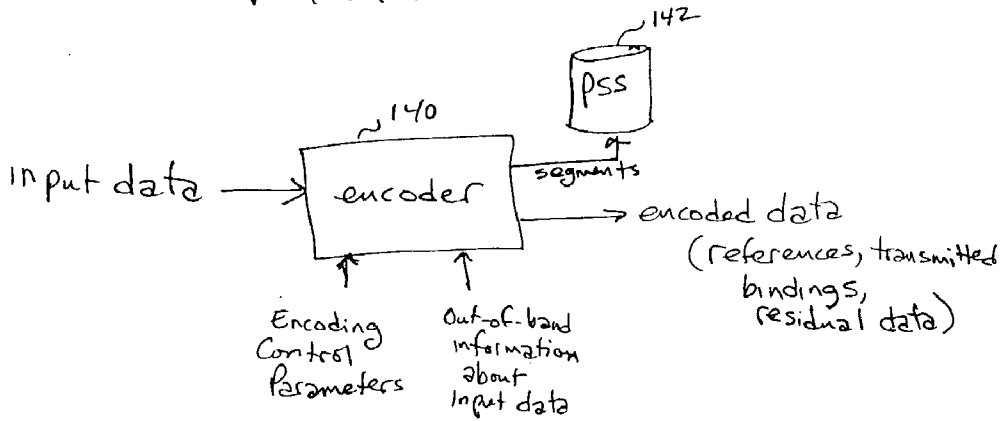 142
PSS
140
input data
encoder
segments
encoded data
(references, transmitted
bindings,
residual data)
Encoding
Control
Parameters
Out-of-band
information
about
input data